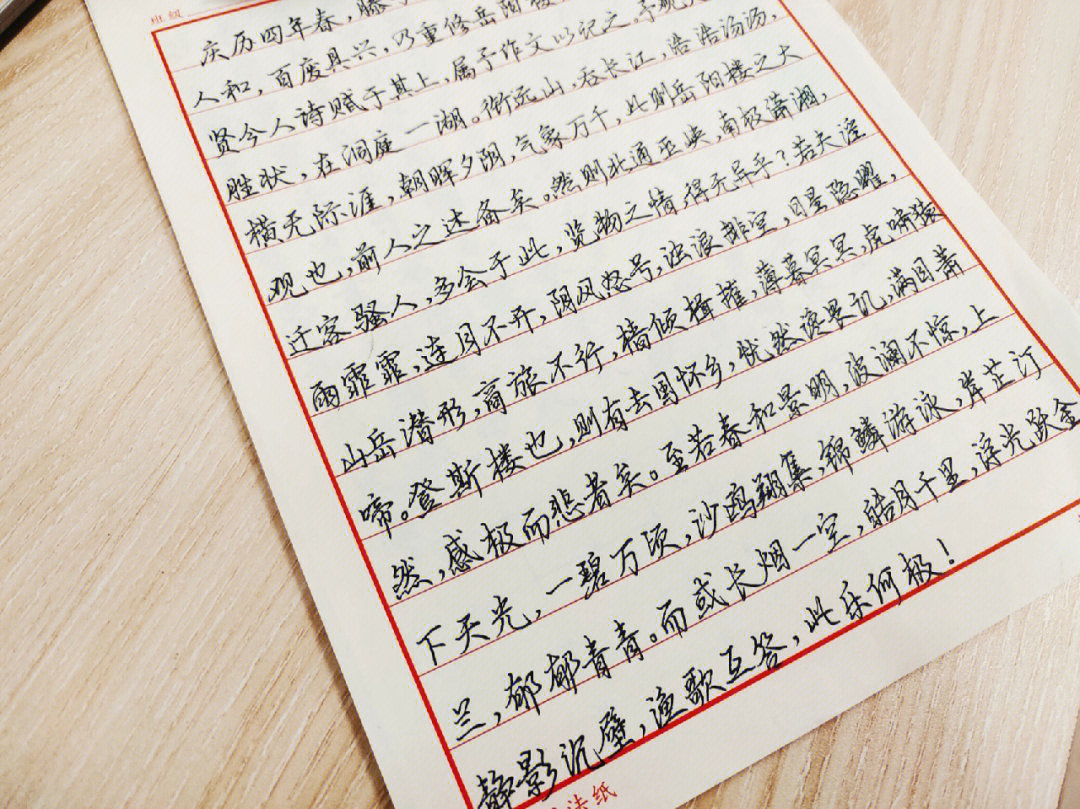 班级
庆历四年春，滕
人和，百废具兴，乃重修岳阳
贤今人诗赋于其上，属予作文以记之，予观
胜状，在洞庭一湖。衔远山，吞长江，浩浩汤汤，
横无际涯，朝晖夕阴，气象万千，此则岳阳楼之大
观也，前人之述备矣。然则北通巫峡，南极潇湘，
迁客骚人，多会于此，览物之情得无异乎？若夫淫
雨霏霏，连月不开，阴风怒号，浊浪排空，日星隐曜，
山岳潜形，商旅不行，樯倾楫摧，薄暮冥冥，虎啸猿
啼。登斯楼也，则有去国怀乡，忧然谗畏讥，满目萧
然，感极而悲者矣。至若春和景明，波澜不惊，上
下天光，一碧万顷，沙鸥翔集，锦鳞游泳，岸芷汀
兰，郁郁青青。而或长烟一空，皓月千里，浮光跃金
静影沉璧，渔歌互答，此乐何极！
法纸